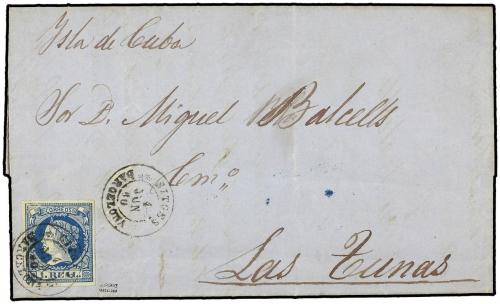 Isla de Cuba
Sor D. Miguel Balcells
Cmo
SITGES
4
JUN
60
BARCELONA
Las Tunas
CORREOS
1 REAL.